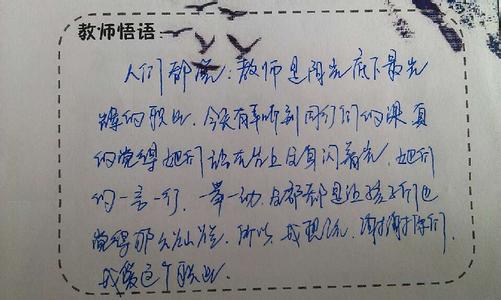 教师悟语:
人们都说:教师是阳光底下最光
辉的职业,今天有幸听到同行们的课真
的觉得她们站在台上自身闪着光,她们
的一言一行,一举一动,都是让孩子们
觉得那么,所以,我现说,谢谢你们,
我爱这个职业.